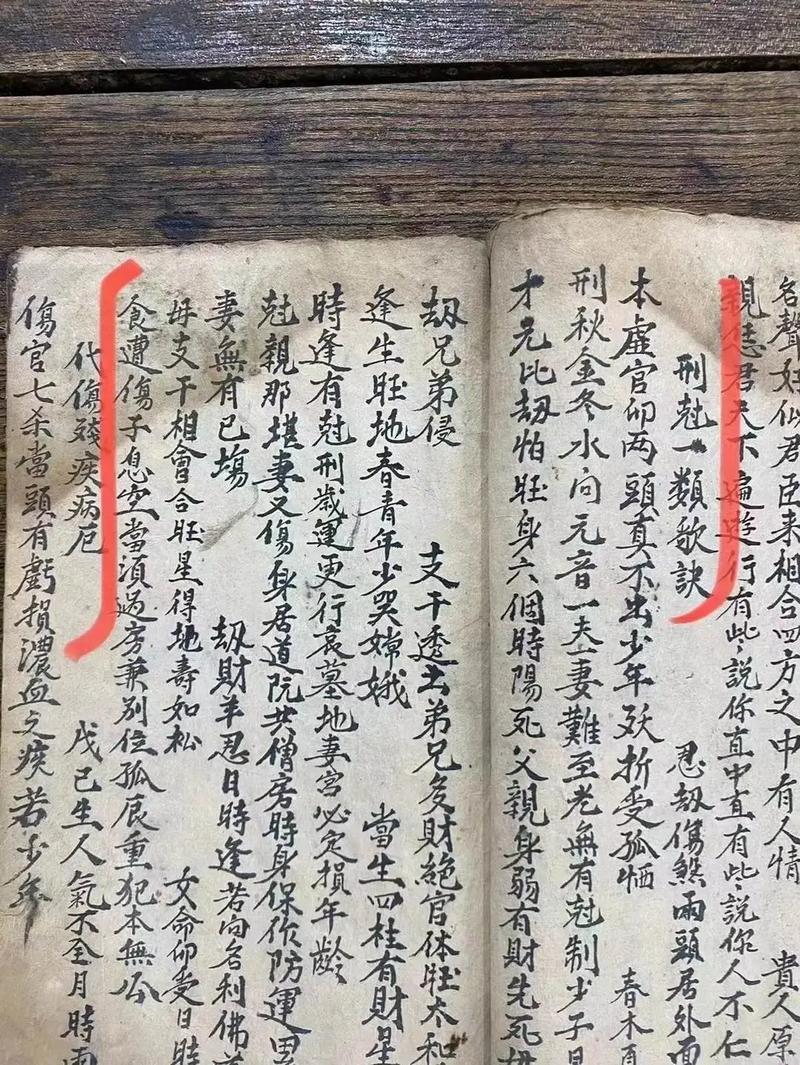 名聲好似君臣来相合四方之中有人情 貴人原
親德君天下遍遊行有些說你直中直有些說你人不仁
刑尅一類歌訣 忍刼傷煞兩頭居外面
本虛官仰两頭真不出少年殀折受孤恓 春木
刑秋金冬水向元音一夫一妻難至老無有尅制少子
才元比刼怕旺身六個時陽死父親身弱有財先死
刼兄弟侵 支干透去弟兄多財絶官体旺太和
逢生旺地春青年少哭嫦娥 當生四柱有財星
時逢有尅刑歲運更行衰墓地妻宫必定損年齡
尅親那堪妻又傷身居道院共僧房時身保作防運
妻無有已塲 刼財羊忍日時逢若向名利佛
母支干相會合旺星得地壽如松 女命仰受日時
食遭傷子息空當須過房兼别位孤辰重犯本無公
代傷殘疾病厄 戊己生人氣不全月時兩
傷官七杀當頭有虧損濃血之疾若少年